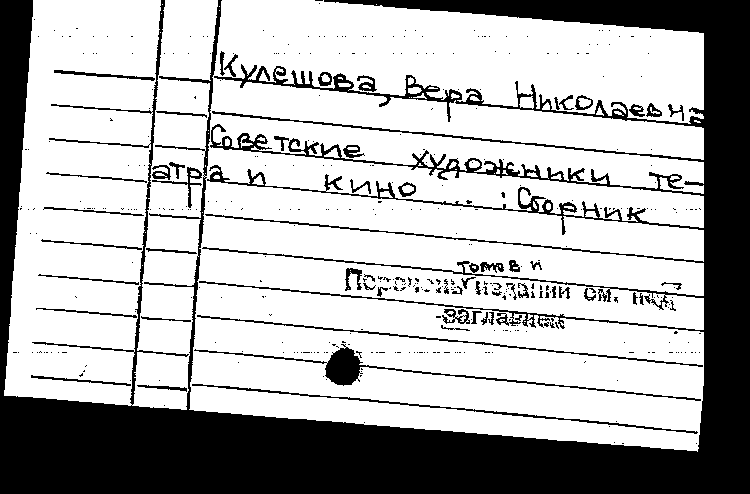 Кулешова, Вера Николаевна
Советские художники те-
атра и кино ... : Сборник
томов и
Перечень изданий см. под
заглавием